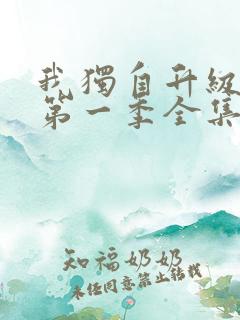 我獨自升級
第一季全集
知福奶奶
未经同意禁止转载